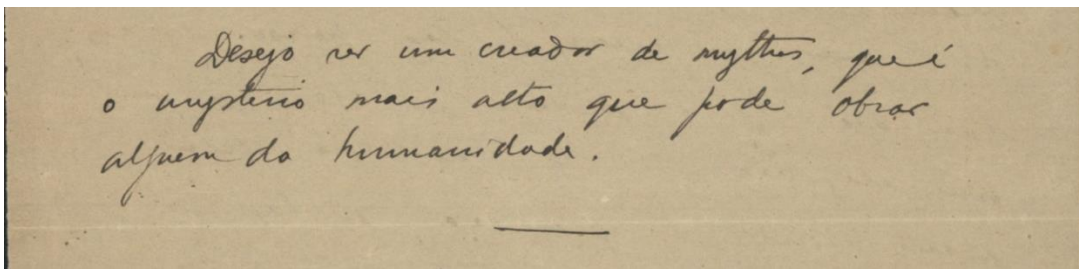 Desejo ser um creador de mythos, que é
o mysterio mais alto que pode obrar
alguem da humanidade.